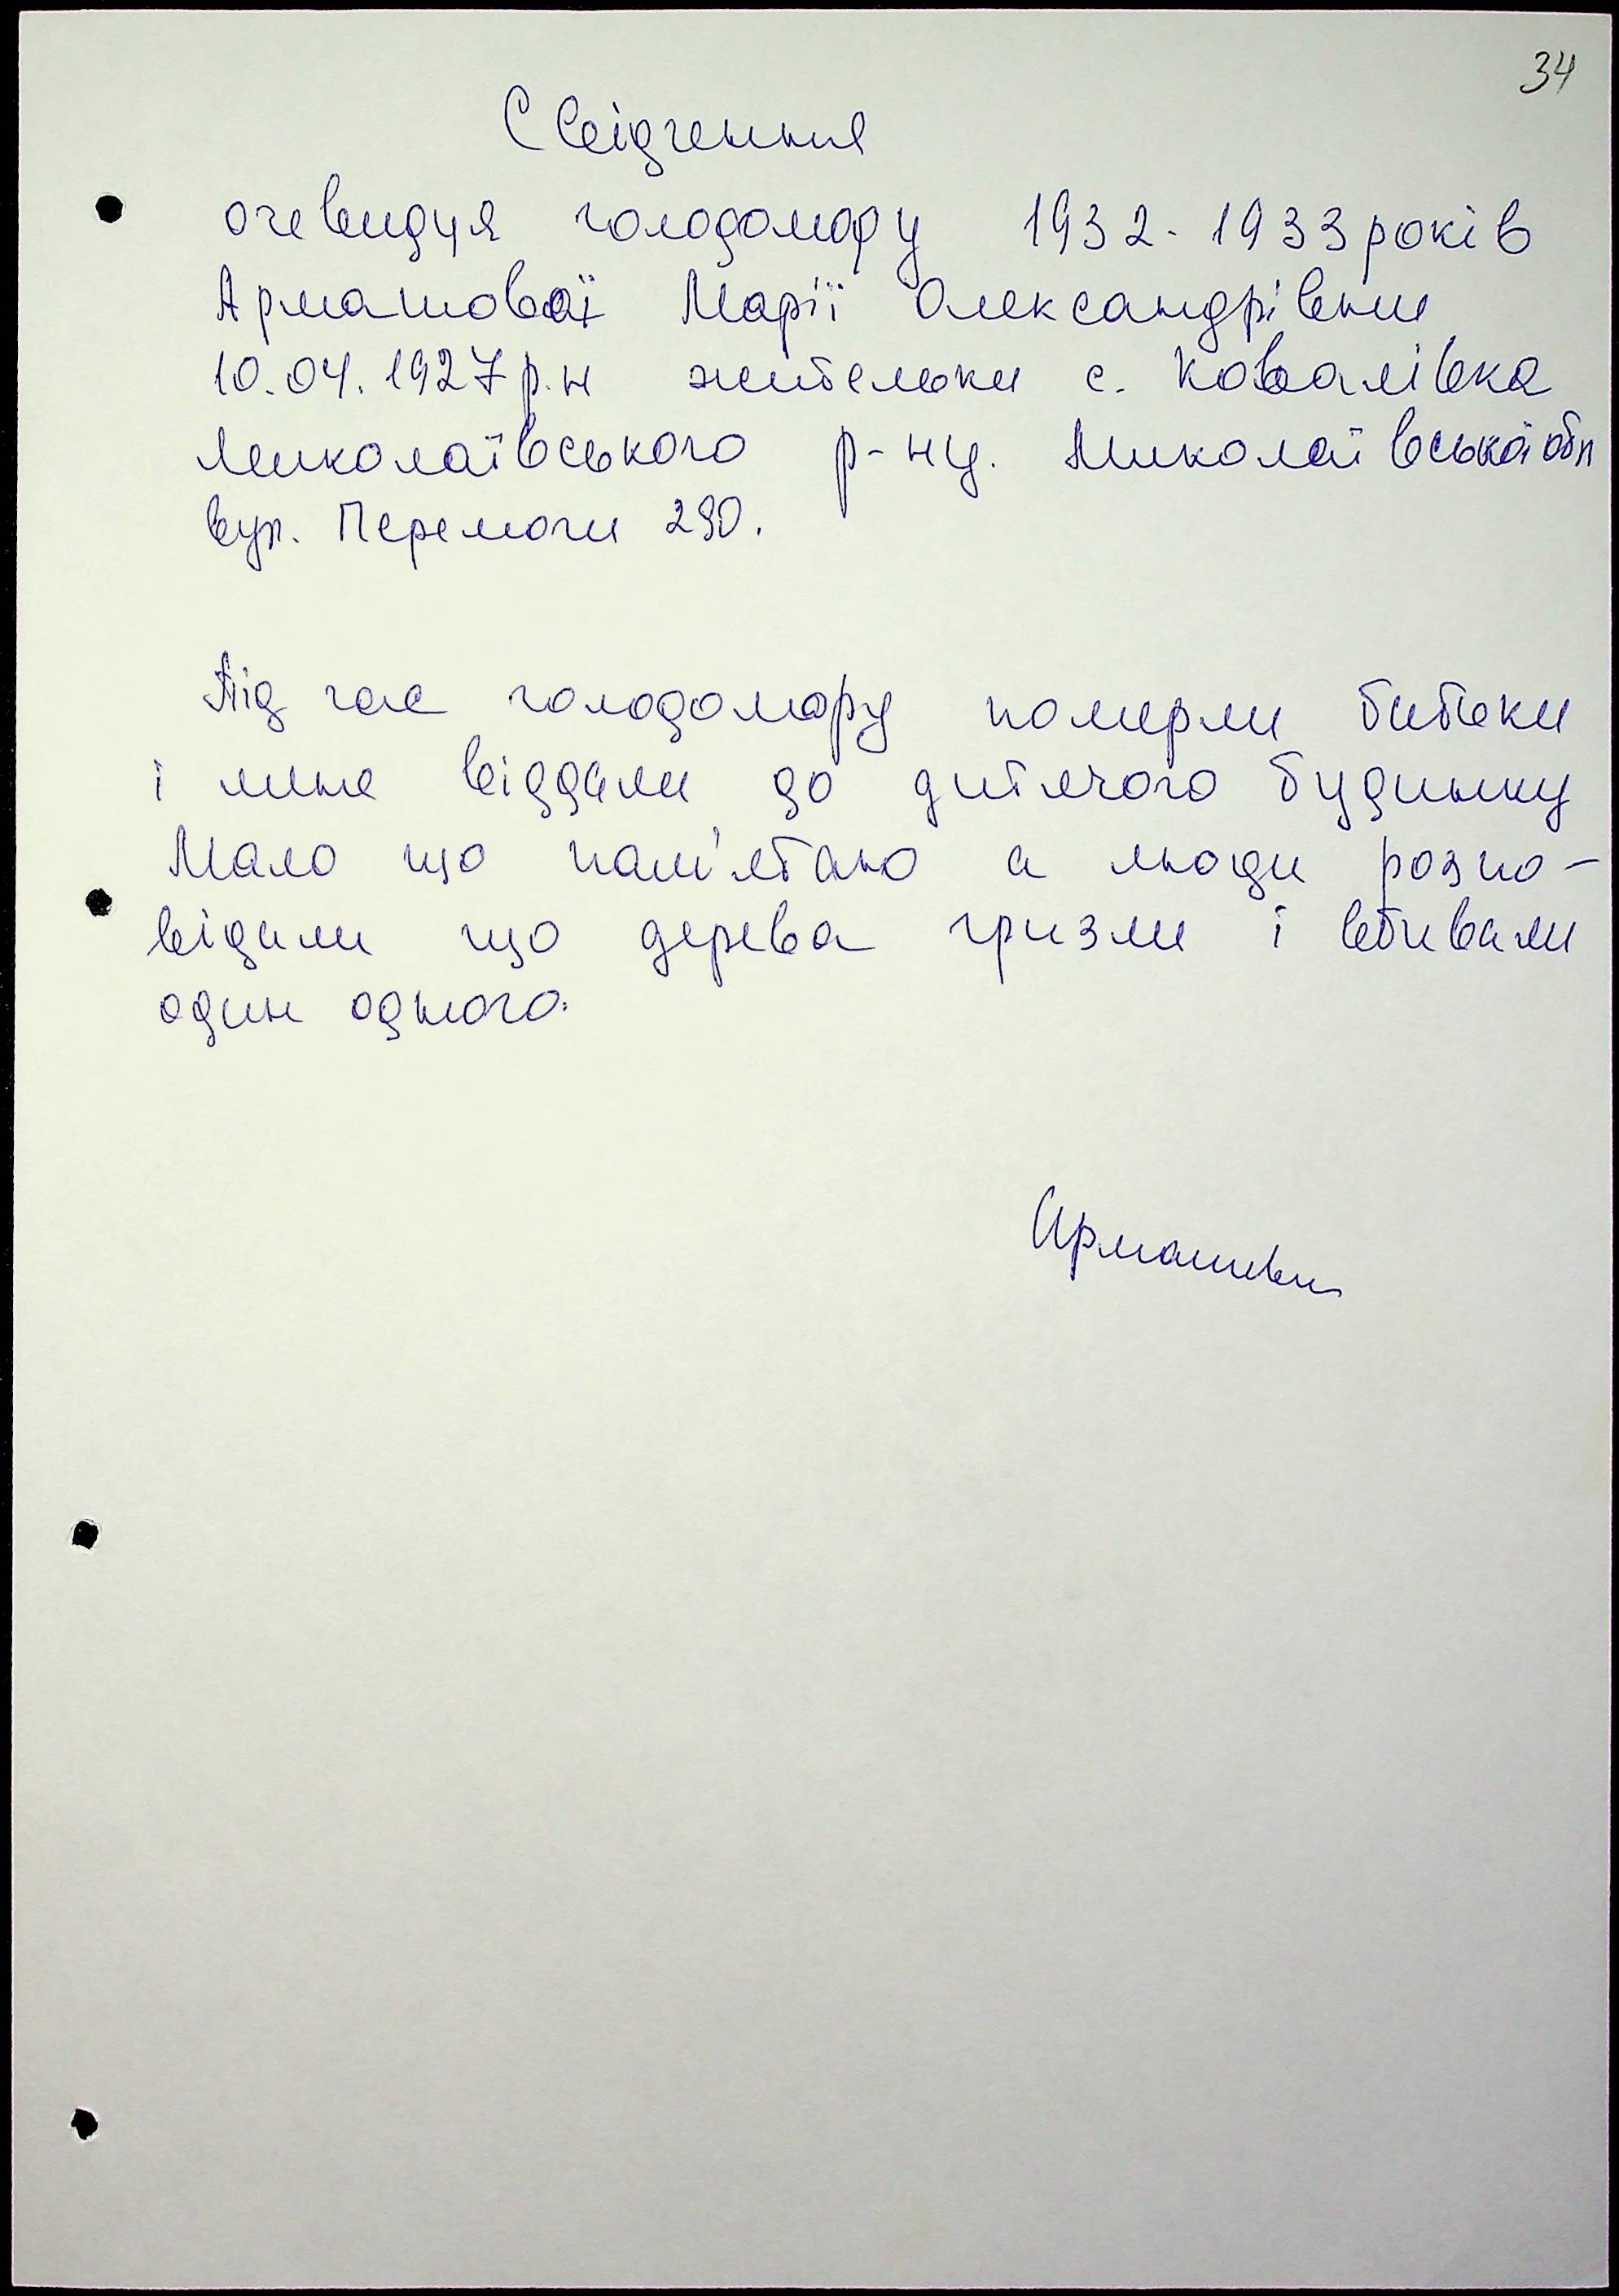 34
Свідчення
очевидця голодомору 1932-1933 років
Армашової Марії Олександрівни
10.04.1927 р.н жительки с. Ковалівка
Миколаївського р-ну. Миколаївської обл
вул. Перемоги 290.
Під час голодомору померли батьки
і мене віддали до дитячого будинку
Мало що пам'ятаю а люди розпо-
відали що дерева гризли і вбивали
один одного.
Армашова